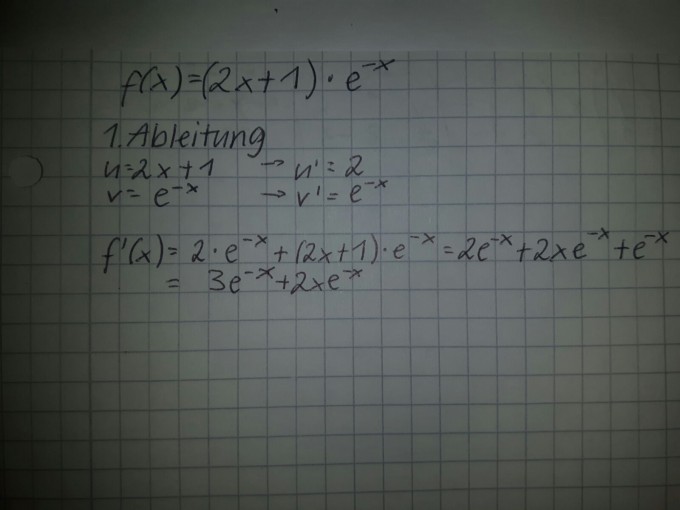 f(x)=(2x+1)·e^-x
1. Ableitung
u=2x+1 → u'=2
v=e^-x → v'=e^-x
f'(x)=2·e^-x+(2x+1)·e^-x=2e^-x+2xe^-x+e^-x
=3e^-x+2xe^-x